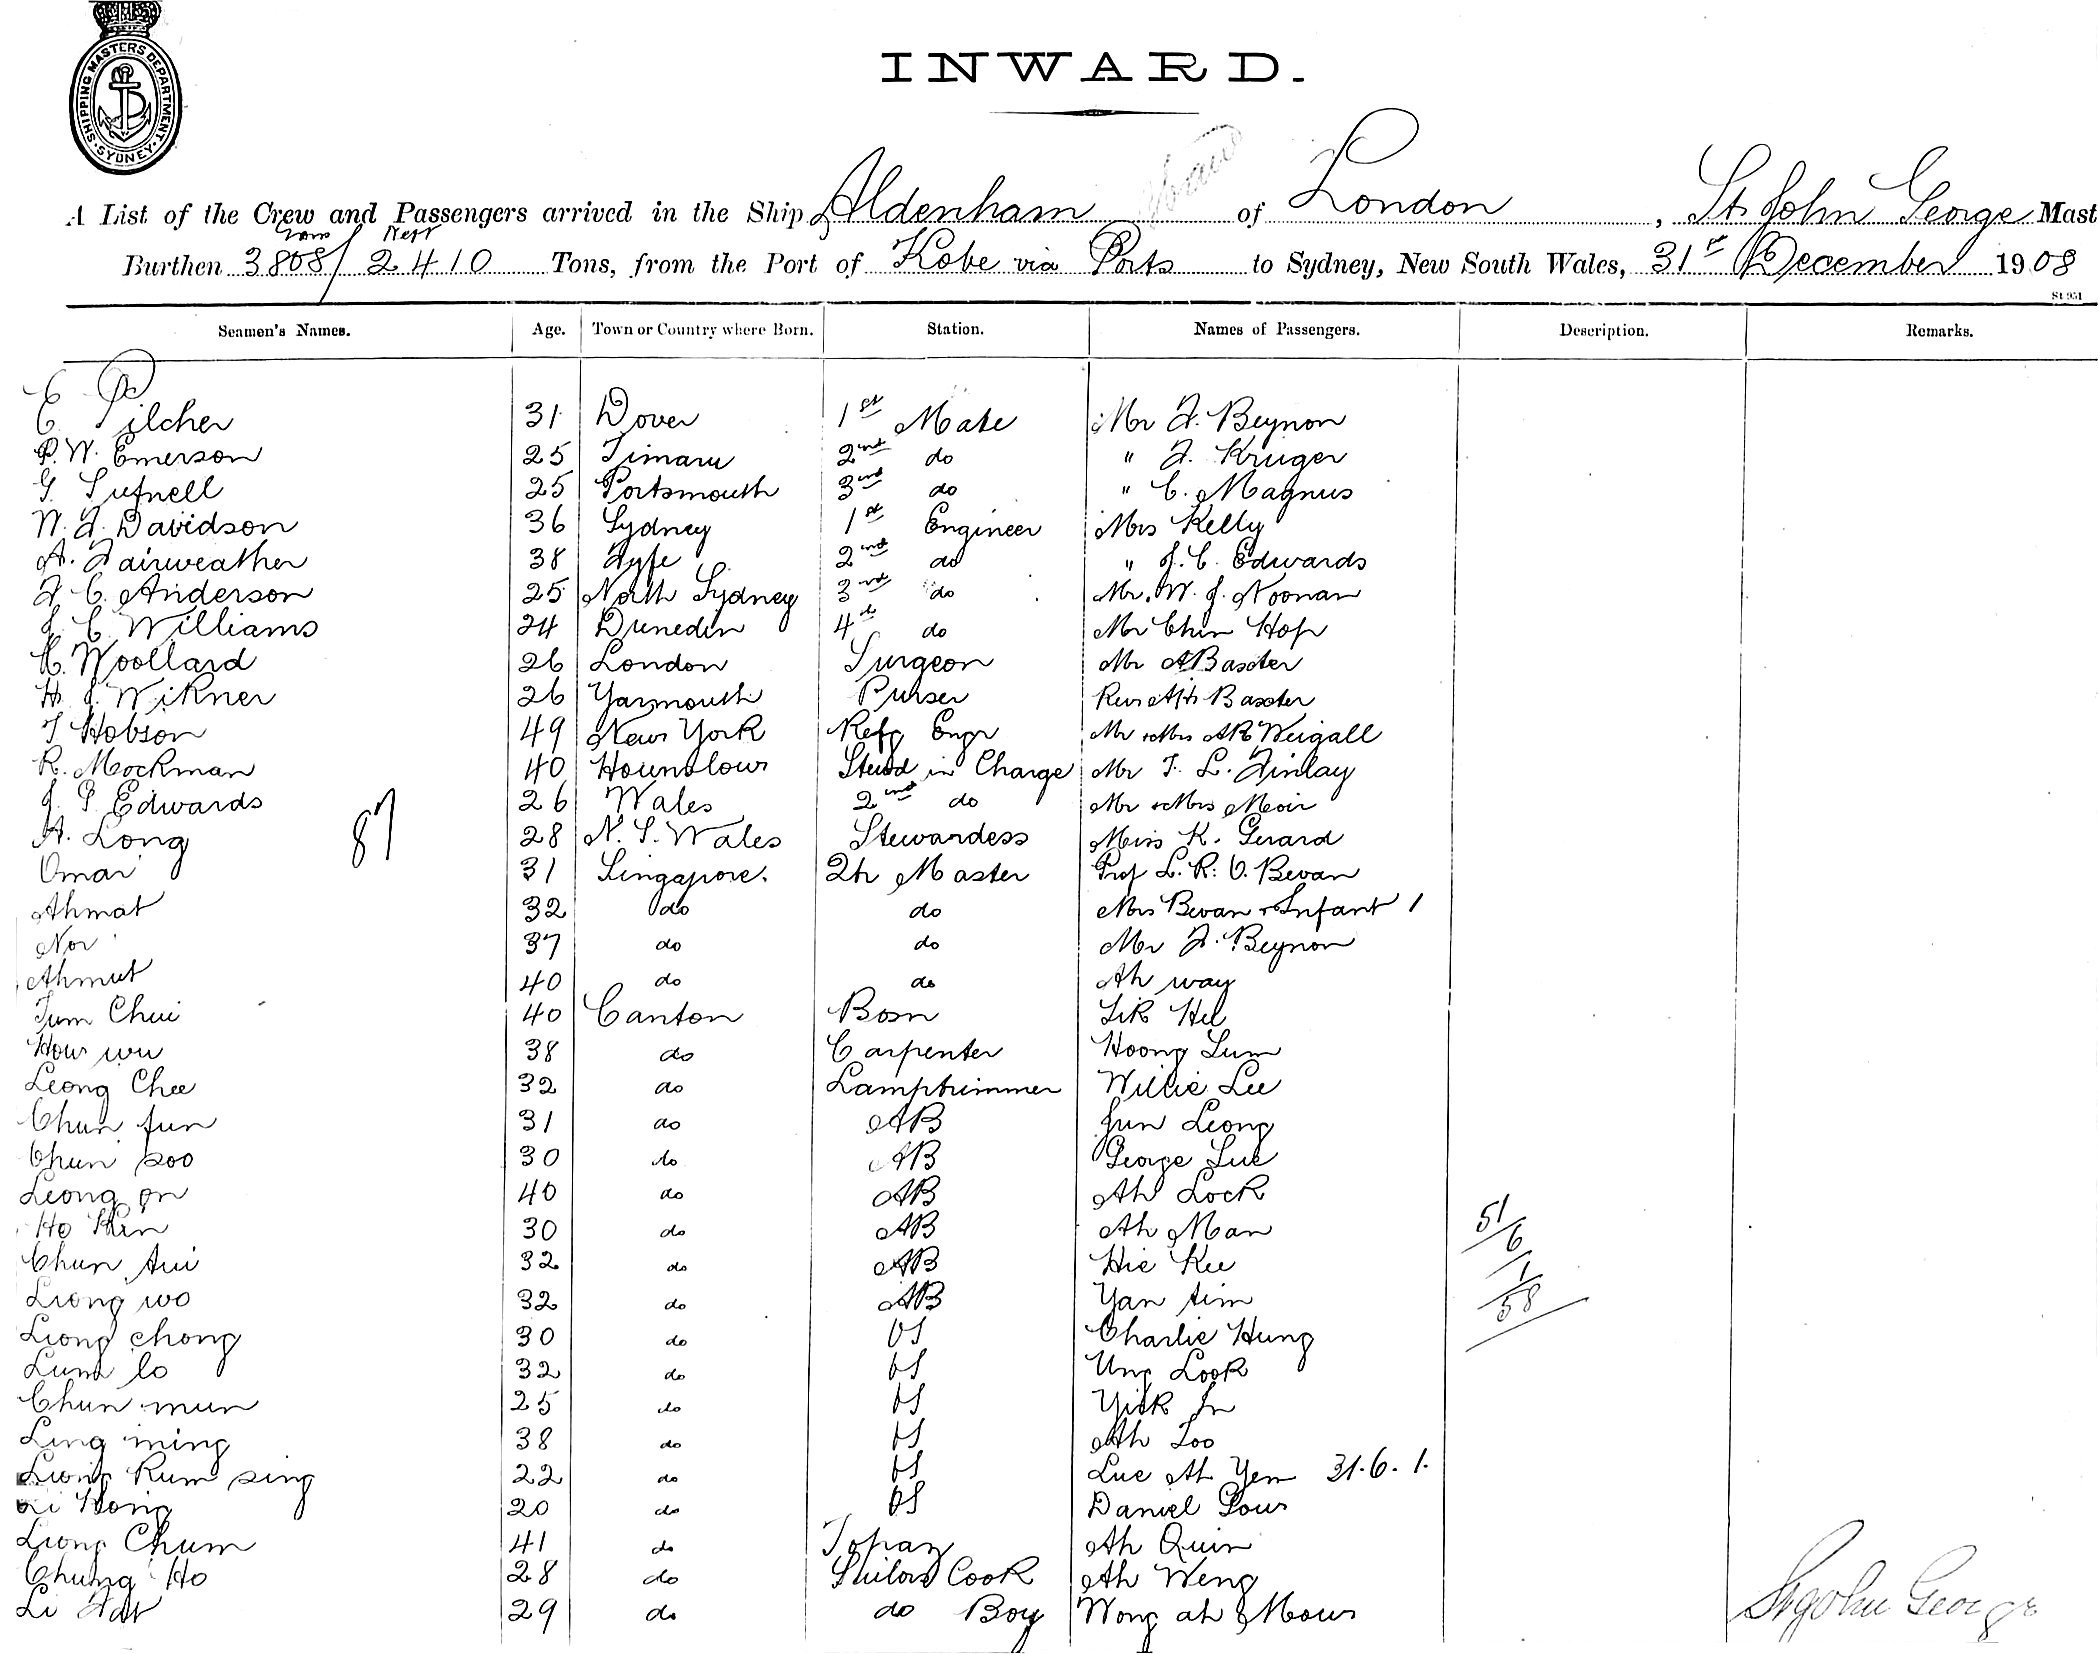 SHIPPING MASTERS DEPARTMENT. SYDNEY.
INWARD.
A List of the Crew and Passengers arrived in the Ship Aldenham of London, St. John George Mast
Gross Nett
Burthen 3808/2410 Tons, from the Port of Kobe via Ports to Sydney, New South Wales, 31st December 1908
St 951
Seamen's Names. Age. Town or Country where Born. Station. Names of Passengers. Description. Remarks.
C. Pilcher 31 Dover 1st Mate Mr F. Beynon
P. W. Emerson 25 Timaru 2nd do " F. Kruger
G. Tufnell 25 Portsmouth 3rd do " C. Magnus
W. F. Davidson 36 Sydney 1st Engineer Mrs Kelly
A. Fairweather 38 Fyfe 2nd do " J. C. Edwards
F. C. Anderson 25 North Sydney 3rd do Mr. W. J. Noonan
J. C. Williams 24 Dunedin 4th do Mr Chin Hop
H. Woollard 26 London Surgeon Mr A Baxter
H. J. Wikner 26 Yarmouth Purser Rev AH Baxter
T Hobson 49 New York Refg Engr Mr & Mrs AR Weigall
R. Mockman 40 Hounslow Stewd in Charge Mr T. L. Finlay
J. P. Edwards 26 Wales 2nd do Mr & Mrs Moir
A. Long 87 28 N. S. Wales Stewardess Miss K. Gerard
Omar 31 Singapore. Qtr Master Prof L. R. O. Bevan
Ahmat 32 do do Mrs Bevan & Infant 1
Nor 37 do do Mr F. Beynon
Ahmut 40 do do Ah way
Tum Chui 40 Canton Bosn Sik Hel
How wu 38 do Carpenter Hoong Lum
Leong Chee 32 do Lamptrimmer Willie Lee
Chun fun 31 do AB Jun Leong
Chun soo 30 do AB George Lue
Leong on 40 do AB Ah Lock
Ho Kin 30 do AB Ah Man 51/6
Chun tui 32 do AB Hie Kee 1
Leong wo 32 do AB Yan tim 58
Leong chong 30 do OS Charlie Hung
Lum lo 32 do OS Ung Look
Chun mun 25 do OS Yick In
Ling ming 38 do OS Ah Loo
Leong Kum sing 22 do OS Lue Ah Yem 31. 6. 1.
Li Hong 20 do OS Daniel Gow
Leong Chum 41 do Topaz Ah Quin
Chung Ho 28 do Sailors Cook Ah Weng
Li Fat 29 do do Boy Wong ah Mow
St John George